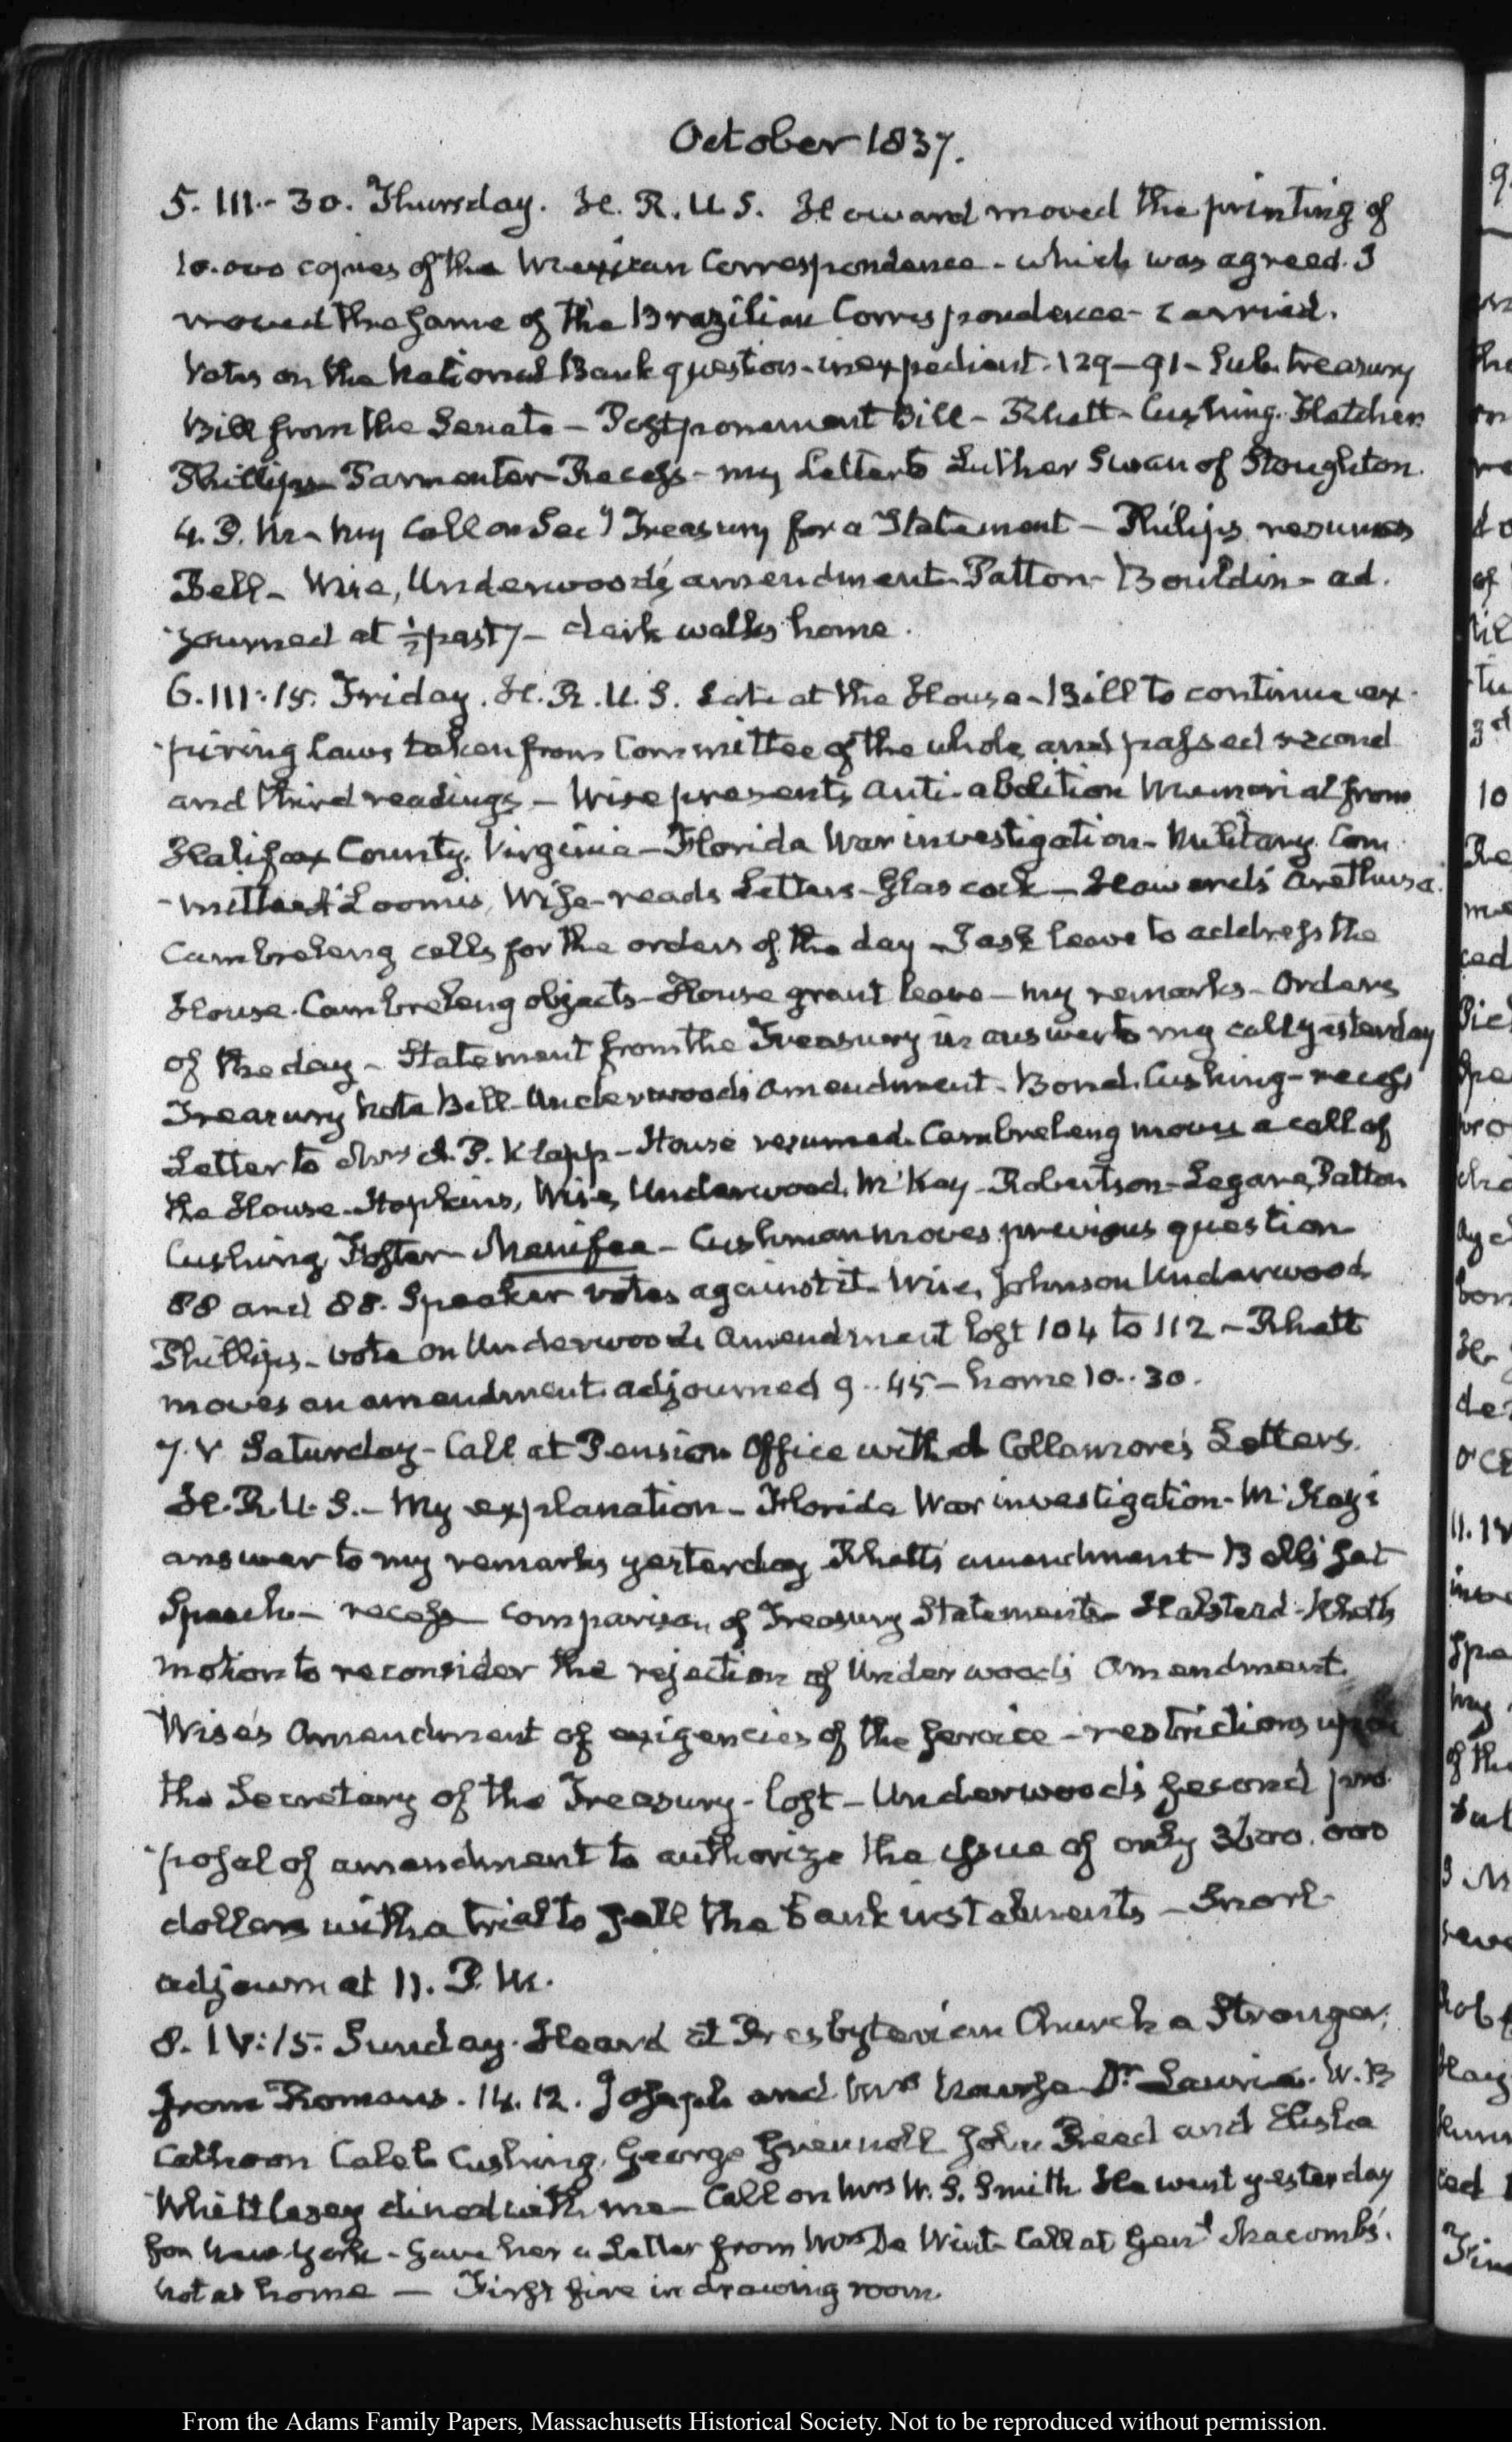 October 1837.
5. III.-30. Thursday. H. R. U. S. Howard moved the printing of
10.000 copies of the Mexican Correspondence - which was agreed. I
moved the same of the Brazilian Correspondence - carried.
Votes on the National Bank question - inexpedient. 129 - 91 - Sub. treasury
Bill from the Senate - Postponement Bill - Rhett - Cushing. Fletcher
Phillips - Parmenter - Recess - my Letter to Luther Swan of Stoughton.
4. P. M. - My call on Secy. Treasury for a Statement - Philips resumes
Bell - Wise, Underwood's amendment - Patton - Bouldin - ad.
journed at ½ past 7 - dark walk home.
6. III:15. Friday. H. R. U. S. Late at the House - Bill to continue ex-
-piring laws taken from Committee of the whole and passed second
and third readings - Wise presents anti-abolition Memorial from
Halifax County, Virginia - Florida War investigation - Military Com
-mittee Loomis, Wise - reads Letters - Glascock - Howard's Arethusa.
Cambreleng calls for the orders of the day - I ask leave to address the
House. Cambreleng objects - House grant leave - my remarks - Orders
of the day - Statement from the Treasury in answer to my call yesterday
Treasury Note Bill - Underwood's Amendment - Bond. Cushing - recess
Letter to Mrs A. P. Klapp - House resumed. Cambreleng moves a call of
the House. Hopkins, Wise, Underwood, McKay - Robertson - Legare, Patton
Cushing, Foster - Menifee - Cushman moves previous question
88 and 88. Speaker votes against it. Wise, Johnson Underwood.
Phillips - vote on Underwood's Amendment lost 104 to 112 - Rhett
moves an amendment. adjourned 9..45 - home 10..30.
7. V Saturday - Call at Pension Office with Collamore's Letters.
H. R. U. S. - My explanation - Florida War investigation - McKay's
answer to my remarks yesterday Rhett's amendment - Bell's
Speech - recess comparison of Treasury Statements - Halstead - Rhett's
motion to reconsider the rejection of Underwood's Amendment.
Wise's Amendment of exigencies of the service - restrictions upon
the Secretary of the Treasury - lost - Underwood's second pro
-posal of amendment to authorize the issue of only 3600.000
dollars with a trial to sell the bank instalments - Snarl -
adjourn at 11. P. M.
8. IV:15. Sunday. Heard at Presbyterian Church a Stranger,
from Romans. 14. 12. Joseph and Mrs Dr Laurie. W. B
Calhoon Caleb Cushing, George Grennell John Reed and Elisha
Whittlesey dined with me - Call on Mrs W. S. Smith. He went yesterday
for New York - Gave her a Letter from Mrs De Wint - Call at Genl Macomb's.
not at home — First fire in drawing room.
9
From the Adams Family Papers, Massachusetts Historical Society. Not to be reproduced without permission.